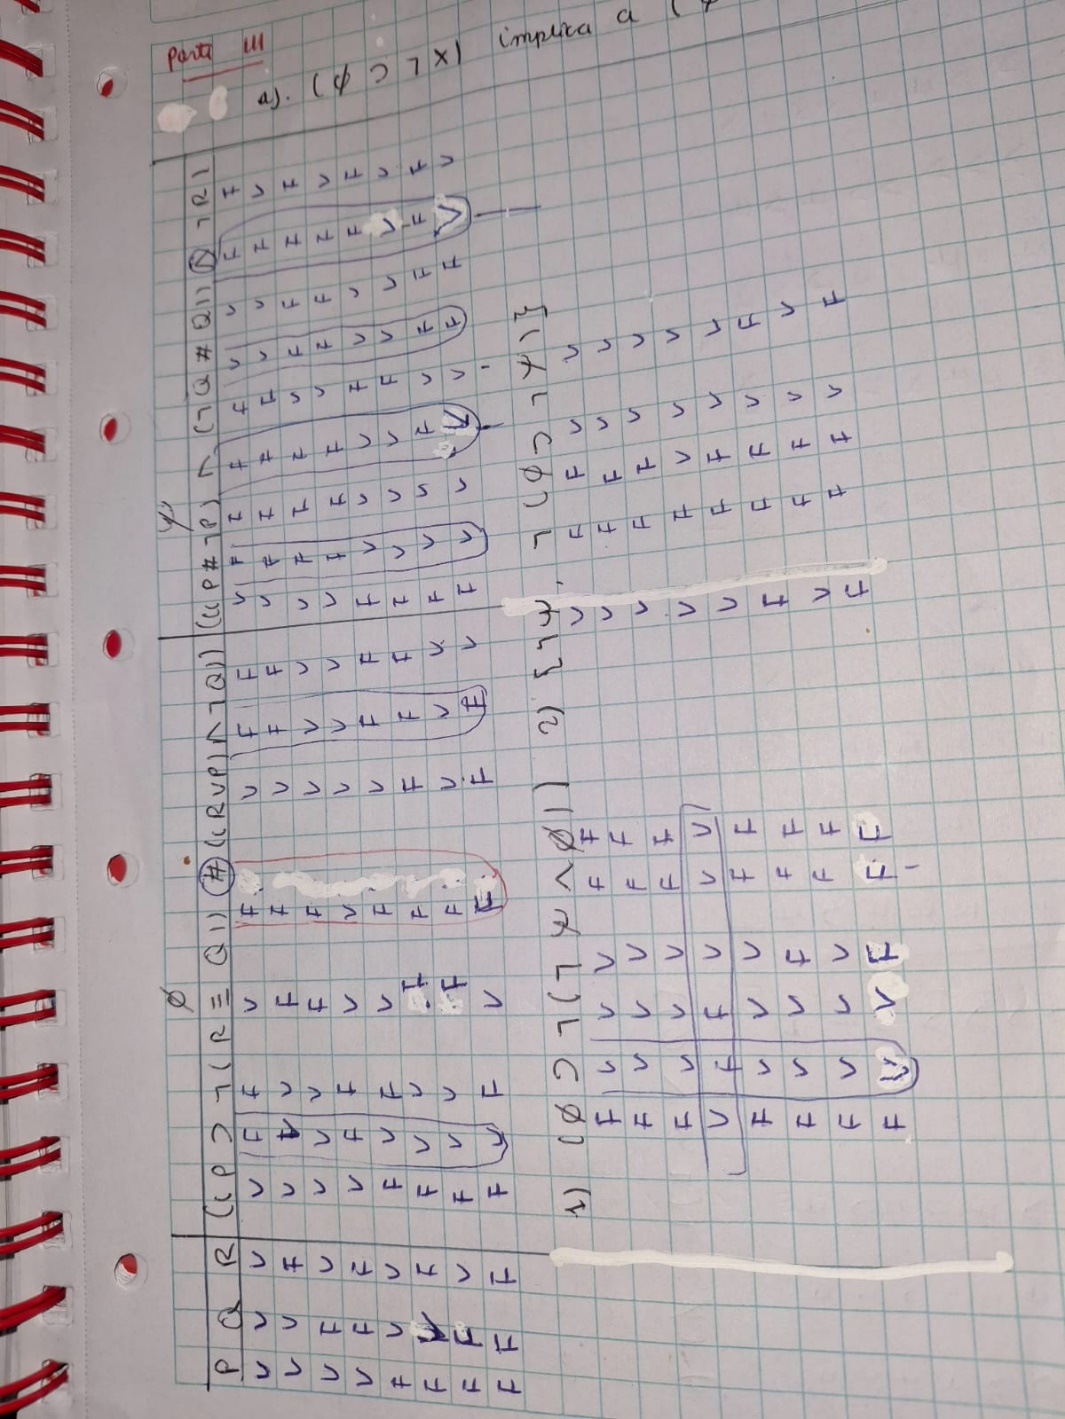 Parte III
a). (φ ⊃ ¬X) implica a (
φ ψ
P Q R ((P ⊃ ¬(R ≡ Q)) # ((R∨P)∧¬Q)) (((P # ¬P) ∧ (¬Q # Q)) R ¬R)
V V V V F F V F V F F V F F F F V V F F
V V F V V V F F V F F V F F F F V V F V
V F V V V V F F V V V V F F F V F F F F
V F F V F F V V V V V V F F F V F F F V
F V V F V F V F V F F F V V V F V V F F
F V F F V V F F F F F F V V V F V V V V
F F V F V V F F V V V F V V F V F F F F
F F F F V F V F F F V F V V V V F F V V
1) (φ ⊃ ¬(¬ψ ∧ φ)) 2) {¬ψ. ¬(φ ⊃ ¬ψ)}
F V V V F F V F F V V
F V V V F F V F F V V
F V V V F F V F F V V
V F F V V V V F V V V
F V V V F F V F F V V
F V V F F F F F F V F
F V V V F F V F F V V
F V V F F F F F F V F